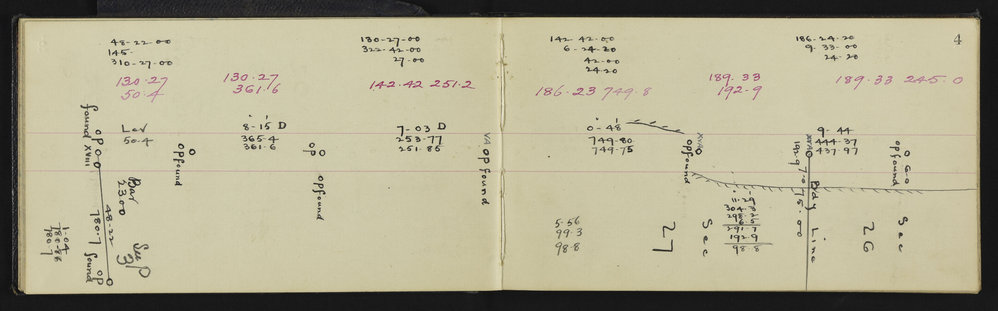 4
48-22-00
145.
310-27-00
130-27-00
322-42-00
27-00
142-42-00
6-24-20
42-00
24.20
186-24-20
9-33-00
24-20
130.27
50.4
130.27
361.6
142.42 251.2
186.23 749.8
189.33
192.9
189.33 245.0
Lev
50.4
8-15 D
365.4
361.6
7-03 D
253.77
251.85
0-48
749.80
749.75
9-44
444.37
437.97
found XVIII
OP
OP found
OP
OP found
VA
OP found
OP found
OP found
Bar
2300
48-22
780.7
found
OP
See P
3
1-04
780.86
780.7
5.56
99.3
98.8
Sec
27
291.7
192.9
98.8
Bdy Line
15.00
Sec
26